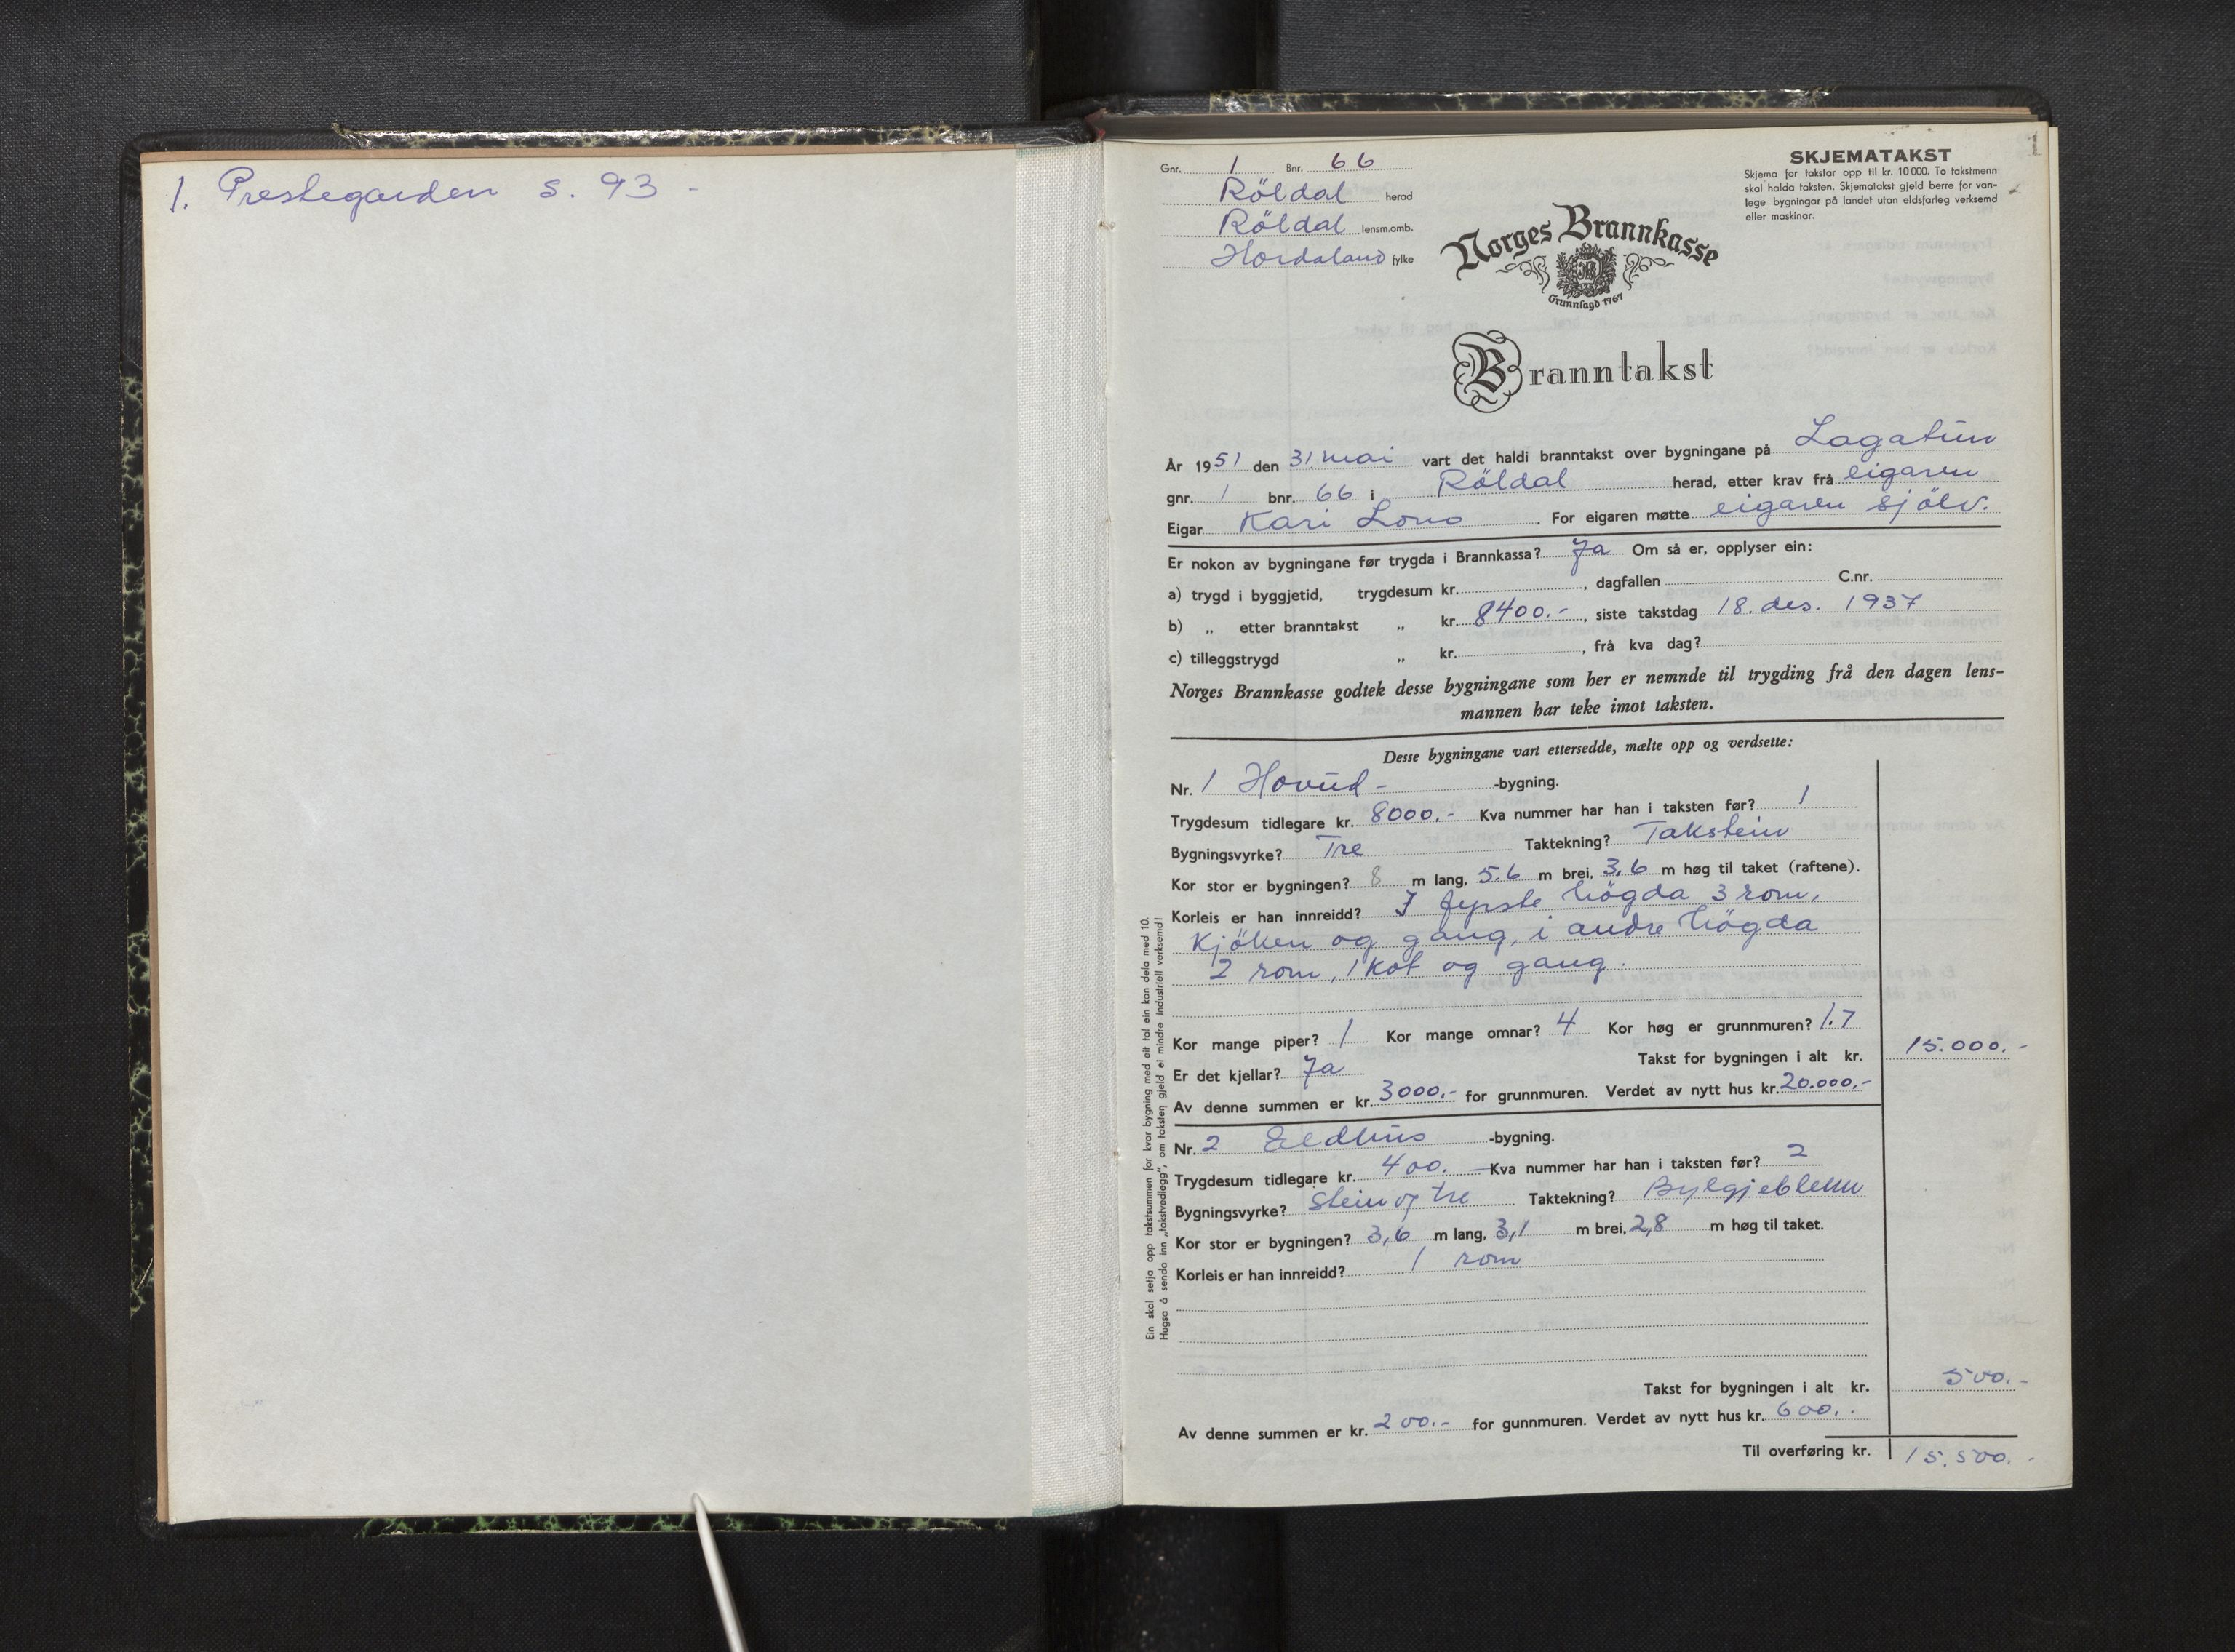 1. Prestegarden s. 93 -
1
SKJEMATAKST
Skjema for takstar opp til kr. 10 000. To takstmenn
skal halda taksten. Skjematakst gjeld berre for van-
lege bygningar på landet utan eldsfarleg verksemd
eller maskinar.
Gnr. 1 Bnr. 66
Röldal herad
Röldal lensm.omb.
Hordaland fylke
Norges Brannkasse
Grunnlagd 1767
Branntakst
År 1951 den 31. mai vart det haldi branntakst over bygningane på Lagatun
gnr. 1 bnr. 66 i Röldal herad, etter krav frå eigaren
Eigar Kari Lono. For eigaren møtte eigaren sjölv.
Er nokon av bygningane før trygda i Brannkassa? Ja Om så er, opplyser ein:
a) trygd i byggjetid, trygdesum kr. , dagfallen C.nr.
b) „ etter branntakst „ kr. 8400.- , siste takstdag 18. des. 1937
c) tilleggstrygd „ kr. , frå kva dag?
Norges Brannkasse godtek desse bygningane som her er nemnde til trygding frå den dagen lens-
mannen har teke imot taksten.
Desse bygningane vart ettersedde, mælte opp og verdsette:
Nr. 1 Hovud- -bygning.
Trygdesum tidlegare kr. 8000.- Kva nummer har han i taksten før? 1
Bygningsvyrke? Tre Taktekning? Takstein
Kor stor er bygningen? 8 m lang, 5.6 m brei, 3,6 m høg til taket (raftene).
Korleis er han innreidd? I fyrste högda 3 rom,
Kjöken og gang, i andre högda
2 rom, 1 kot og gang.
Kor mange piper? 1 Kor mange omnar? 4 Kor høg er grunnmuren? 1.7
Er det kjellar? Ja Takst for bygningen i alt kr. 15.000.-
Av denne summen er kr. 3000.- for grunnmuren. Verdet av nytt hus kr. 20.000.-
Nr. 2 Eldhus -bygning.
Trygdesum tidlegare kr. 400. - Kva nummer har han i taksten før? 2
Bygningsvyrke? Stein og tre Taktekning? Bylgjeblekk
Kor stor er bygningen? 3,6 m lang, 3,1 m brei, 2,8 m høg til taket.
Korleis er han innreidd? 1 rom
Takst for bygningen i alt kr. 500.-
Av denne summen er kr. 200.- for gunnmuren. Verdet av nytt hus kr. 600.-
Til overføring kr. 15.500.-
Ein skal setja opp takstsummen for kvar bygning med eit tal ein kan dela med 10.
Hugsa å senda inn „takstvedlegg”, om taksten gjeld ei mindre industriell verksemd!